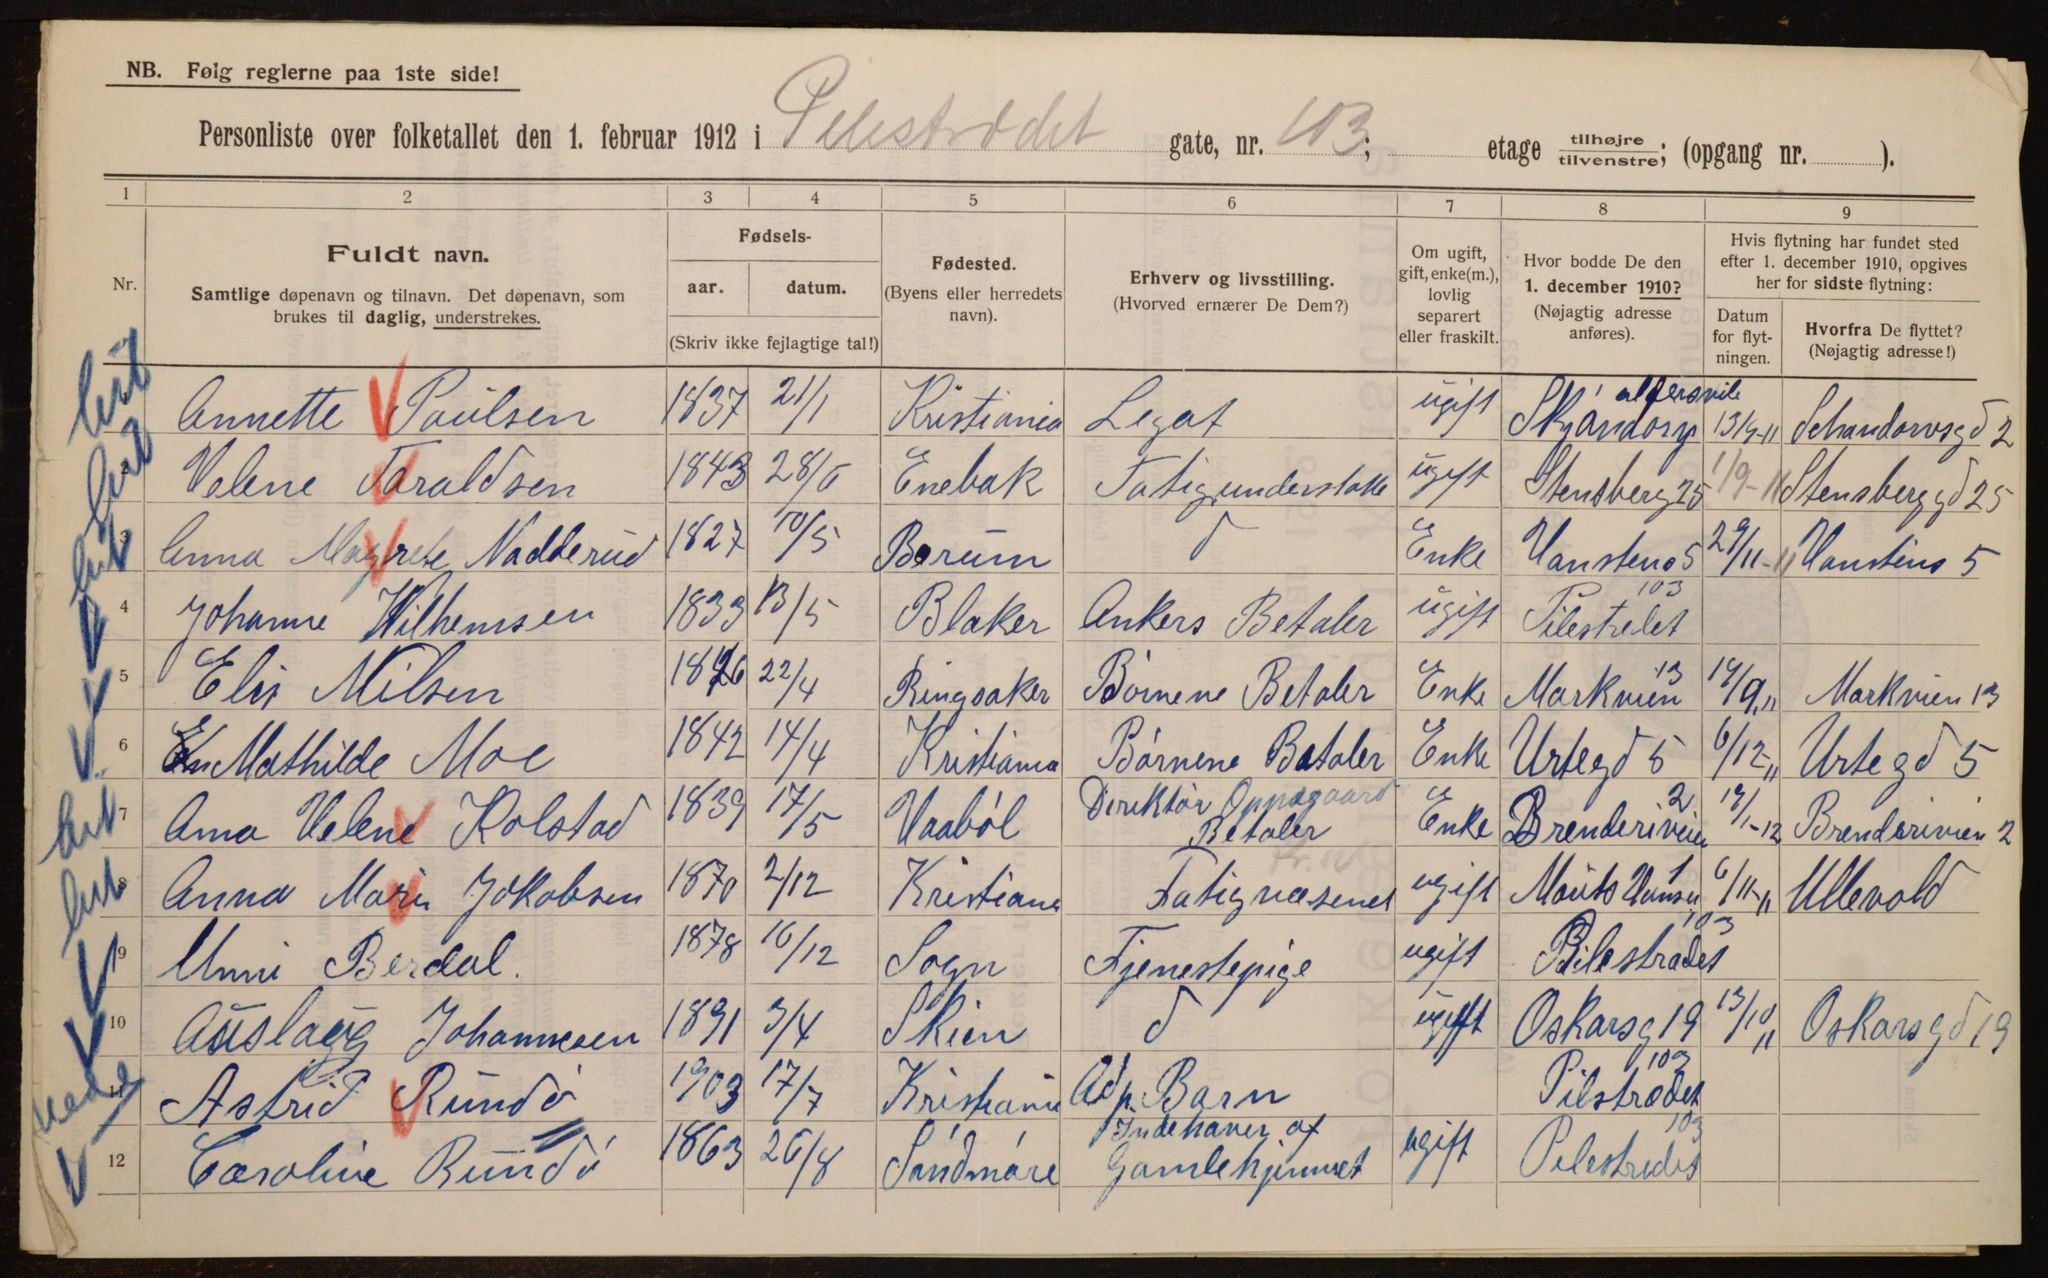 NB. Følg reglerne paa 1ste side!
Personliste over folketallet den 1. februar 1912 i Pilestrædet gate, nr. 103; etage tilhøjre/tilvenstre; (opgang nr. ).
1 2 3 4 5 6 7 8 9
Nr.
Fuldt navn.
Samtlige døpenavn og tilnavn. Det døpenavn, som
brukes til daglig, understrekes.
Fødsels-
aar. datum.
(Skriv ikke fejlagtige tal!)
Fødested.
(Byens eller herredets
navn).
Erhverv og livsstilling.
(Hvorved ernærer De Dem?)
Om ugift,
gift, enke(m.),
lovlig
separert
eller fraskilt.
Hvor bodde De den
1. december 1910?
(Nøjagtig adresse
anføres).
Hvis flytning har fundet sted
efter 1. december 1910, opgives
her for sidste flytning:
Datum
for flyt-
ningen.
Hvorfra De flyttet?
(Nøjagtig adresse!)
Annette Paulsen 1837 21/1 Kristiania Legat ugift aldershvile 2
Helene Taraldsen 1843 28/6 Enebak Fatigunderstøtte ugift Stensberg 25 1/9-11 Stensberggd 25
3 Anna Magrete Nadderud 1827 10/5 Berum d Enke Hanstens 5 29/11-11 Hanstens 5
4 Johanne Wilhemsen 1833 13/5 Blaker Ankers Betaler ugift Pilestredet 103
5 Elis Nilsen 22/4 Ringsaker Børnene Betaler Enke Markveien 13 Markveien 13
6 Mathilde Moe 1842 14/4 Kristiania Børnene Betaler Enke Urtegd 5 6/12 11 Urtegd 5
7 Anna Helene Kolstad 1839 17/5 Direktør Oppegaard Betaler Enke Brenderiveien 2 Brenderiveien 2
8 Anna Marie Jokobsen 1870 2/12 Kristiania Fatigvæsenet ugift 6/11-11 Ullevold
9 Unni Berdal. 1878 16/12 Sogn Tjenestepige ugift Pilestrædet 103
10 Auslaug Johannesen 1891 3/4 Skien d ugift Oskarsg 19 13/10 11 Oskarsgd 19
11 Astrid Rundø 1903 17/7 Kristiania Adp. Barn Pilstrædet 103
12 Caroline Rundø 1863 26/8 Søndmøre Indehaver af Gamlehjemmet ugift Pilestredet 103